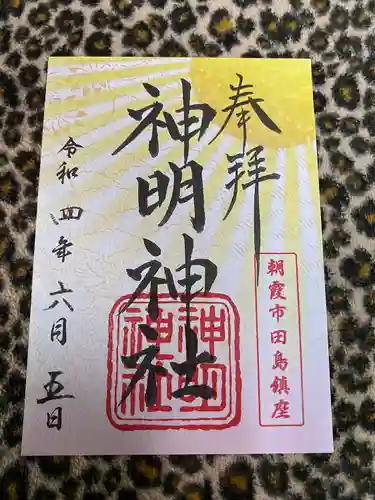 奉拝
朝霞市田島鎮座
神明神社
神明神社
令和四年六月五日